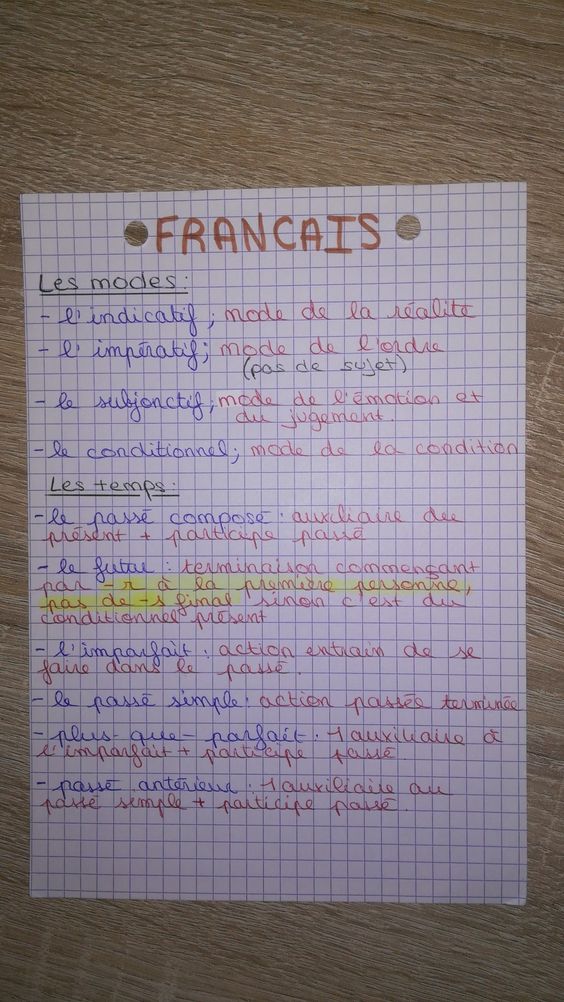 FRANCAIS
Les modes :
- l'indicatif ; mode de la réalité
- l'impératif ; mode de l'ordre
(pas de sujet)
- le subjonctif ; mode de l'émotion et
du jugement.
- le conditionnel ; mode de la condition
Les temps :
- le passé composé : auxiliaire du
présent + participe passé
- le futur : terminaison commençant
par - r à la première personne,
pas de -s final sinon c'est du
conditionnel présent
- l'imparfait : action entrain de se
faire dans le passé.
- le passé simple : action passée terminée
- plus-que-parfait : 1 auxiliaire à
l'imparfait + participe passé.
- passé antérieur : 1 auxiliaire au
passé simple + participe passé.